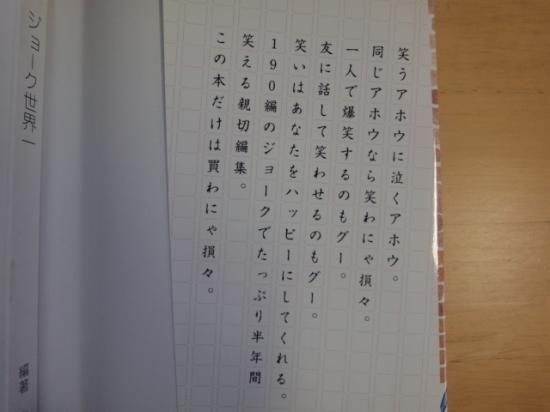 笑うアホウに泣くアホウ。
同じアホウなら笑わにゃ損々。
一人で爆笑するのもグー。
友に話して笑わせるのもグー。
笑いはあなたをハッピーにしてくれる。
190編のジョークでたっぷり半年間
笑える親切編集。
この本だけは買わにゃ損々。
ジョーク世界一
編著